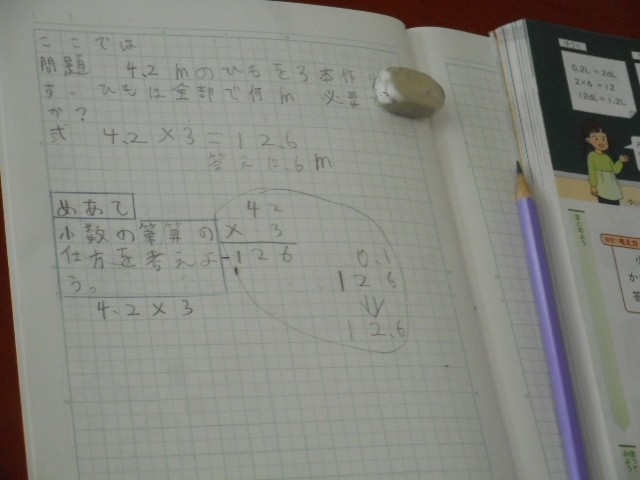 ここでは
問題 4.2mのひもを3本作り
す。ひもは全部で何m 必要
か?
式 4.2×3=12.6
答え12.6m
めあて
小数の筆算の
仕方を考えよ
う。
4.2×3
42
× 3
126
0.1
126
⇓
12.6
0.2L=20dL
2×6=12
12dL=1.2L